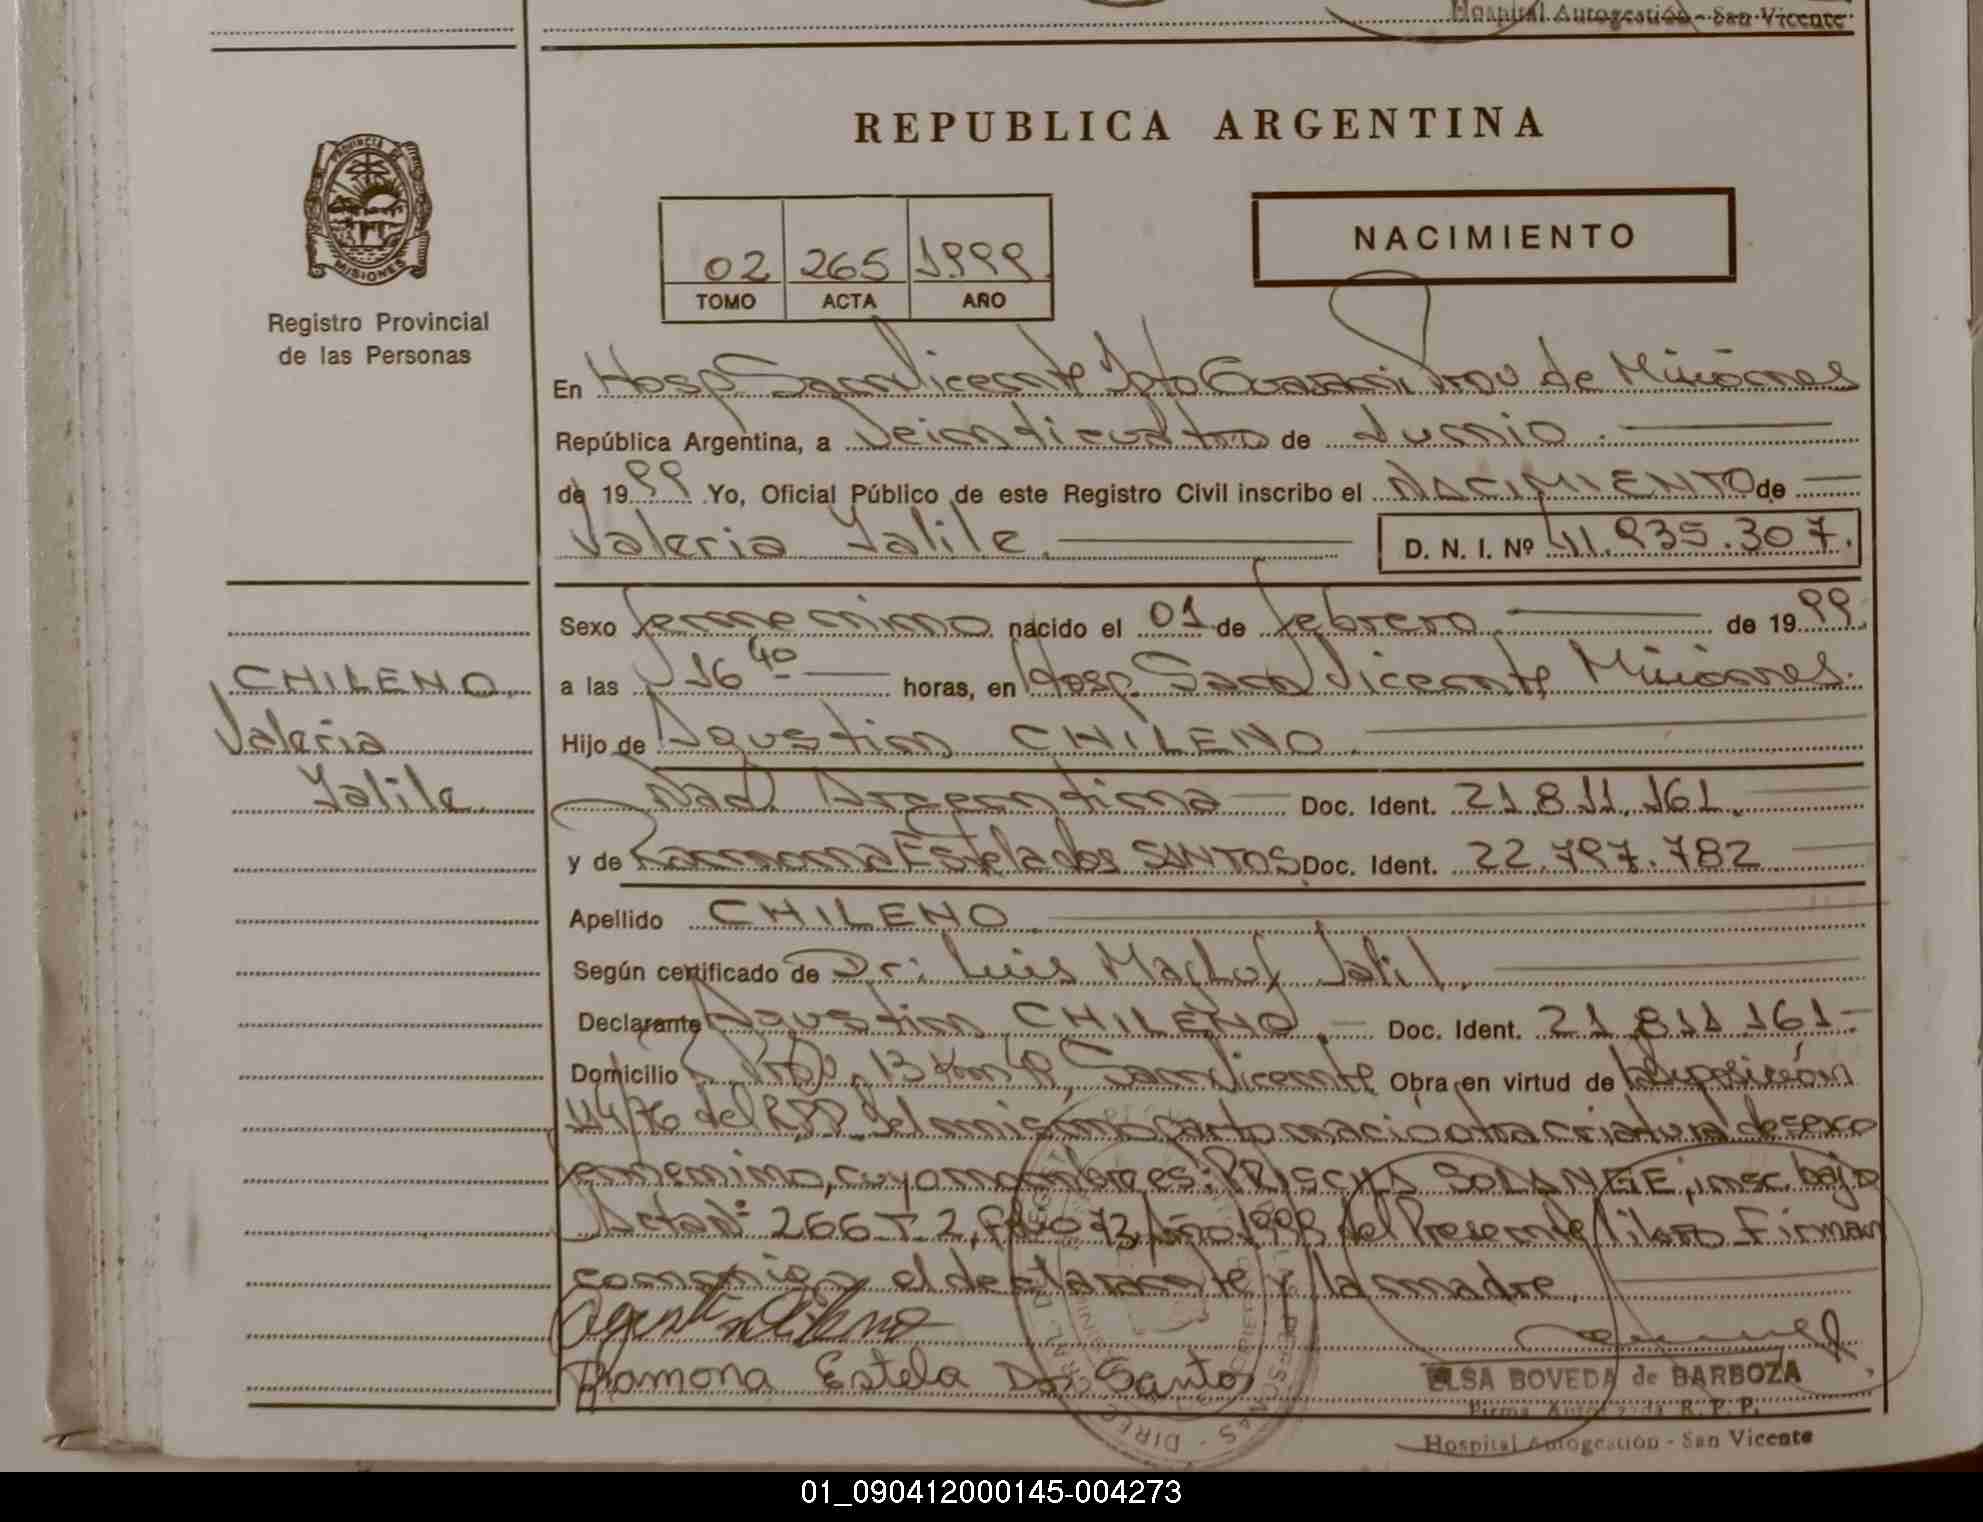 Hospital Autogestión - San Vicente
REPUBLICA ARGENTINA
PROVINCIA DE
MISIONES
Registro Provincial
de las Personas
NACIMIENTO
02 265 1999
TOMO ACTA AÑO
En Hosp San Vicente Dpto Guarani Prov de Misiones
República Argentina, a Veinticuatro de Junio.
de 1999 Yo, Oficial Público de este Registro Civil inscribo el NACIMIENTO de
Valeria Yalile. D. N. I. Nº 41.935.307.
Sexo femenino nacido el 01 de febrero de 1999.
a las 16 40 horas, en Hosp. San Vicente Misiones.
Hijo de Agustin CHILENO.
Nac. Argentina Doc. Ident. 21.811.161.
y de Ramona Estela dos SANTOS Doc. Ident. 22.797.782
Apellido CHILENO.
Según certificado de Dr: Luis Jalil.
Declarante Agustin CHILENO. Doc. Ident. 21.811.161
Domicilio 13 Km San Vicente Obra en virtud de Disposición
114/76 del RPP. Del mismo parto nació otra criatura de sexo
femenino, cuyo nombre es: PRISCILA SOLANGE, insc. bajo
Acta Nº 266 T. 2, Folio 73, Año 1999 del Presente libro. Firman
conmigo el declarante y la madre.
CHILENO.
Valeria
Yalile.
Agustin Chileno
Ramona Estela Dos Santos
ELSA BOVEDA de BARBOZA
Firma Autorizada R. P. P.
Hospital Autogestión - San Vicente
01_090412000145-004273